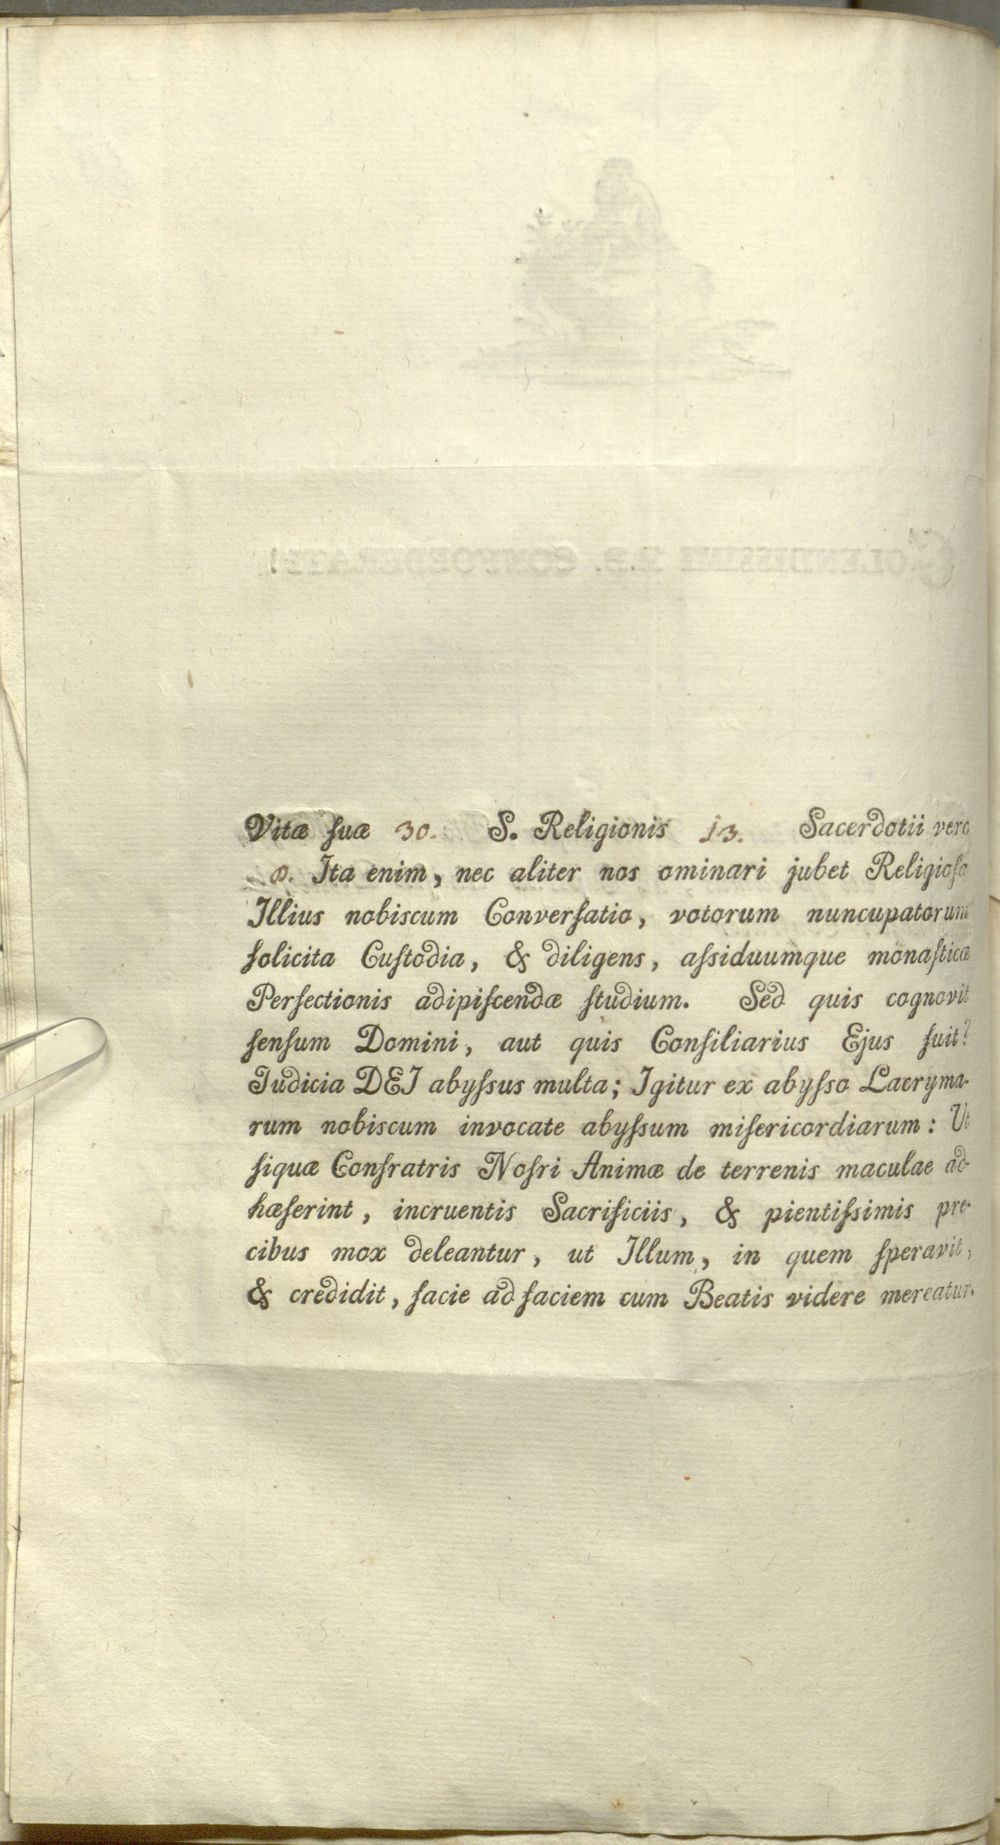 Vitæ ſuæ 30. S. Religionis 13. Sacerdotii vero
Ita enim, nec aliter nos ominari jubet Religioſa
Illius nobiscum Converſatio, votorum nuncupatorum
ſolicita Cuſtodia, & diligens, aſsiduumque monaſticæ
Perfectionis adipiſcendæ ſtudium. Sed quis cognovit
ſenſum Domini, aut quis Conſiliarius Ejus fuit?
Judicia DEI abyſsus multa; Igitur ex abyſso Lacryma-
rum nobiscum invocate abyſsum miſericordiarum: Ut
ſiquæ Confratris Noſri Animæ de terrenis maculae ad-
hæſerint, incruentis Sacrificiis, & pientiſsimis pre-
cibus mox deleantur, ut Illum, in quem ſperavit,
& credidit, facie ad faciem cum Beatis videre mereatur.